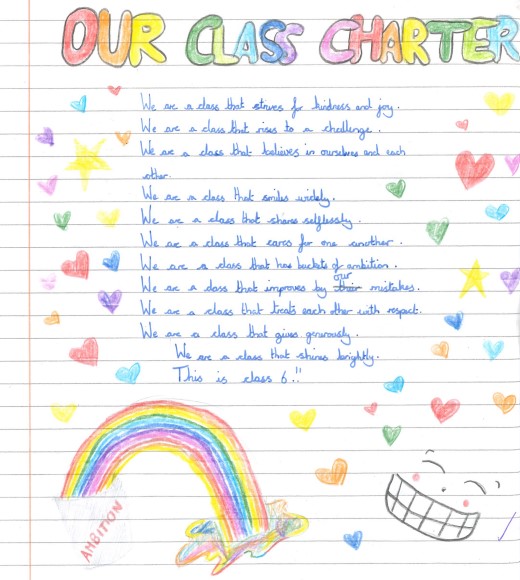 OUR CLASS CHARTER
We are a class that strives for kindness and joy.
We are a class that rises to a challenge.
We are a class that believes in ourselves and each
other.
We are a class that smiles widely.
We are a class that shares selflessly.
We are a class that cares for one another.
We are a class that has buckets of ambition.
We are a class that improves by their our mistakes.
We are a class that treats each other with respect.
We are a class that gives generously.
We are a class that shines brightly.
This is class 6!!
AMBITION